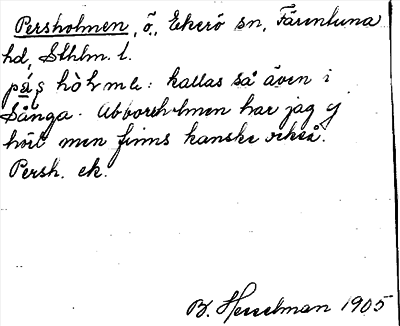 Persholmen, ö, Ekerö sn, Färentuna
hd, Sthlm. l.
hòlmɛ: kallas så även i
Sånga. Abborrholmen har jag ej
hört men finns kanske också.
Persh. ek.
B. Hesselman 1905